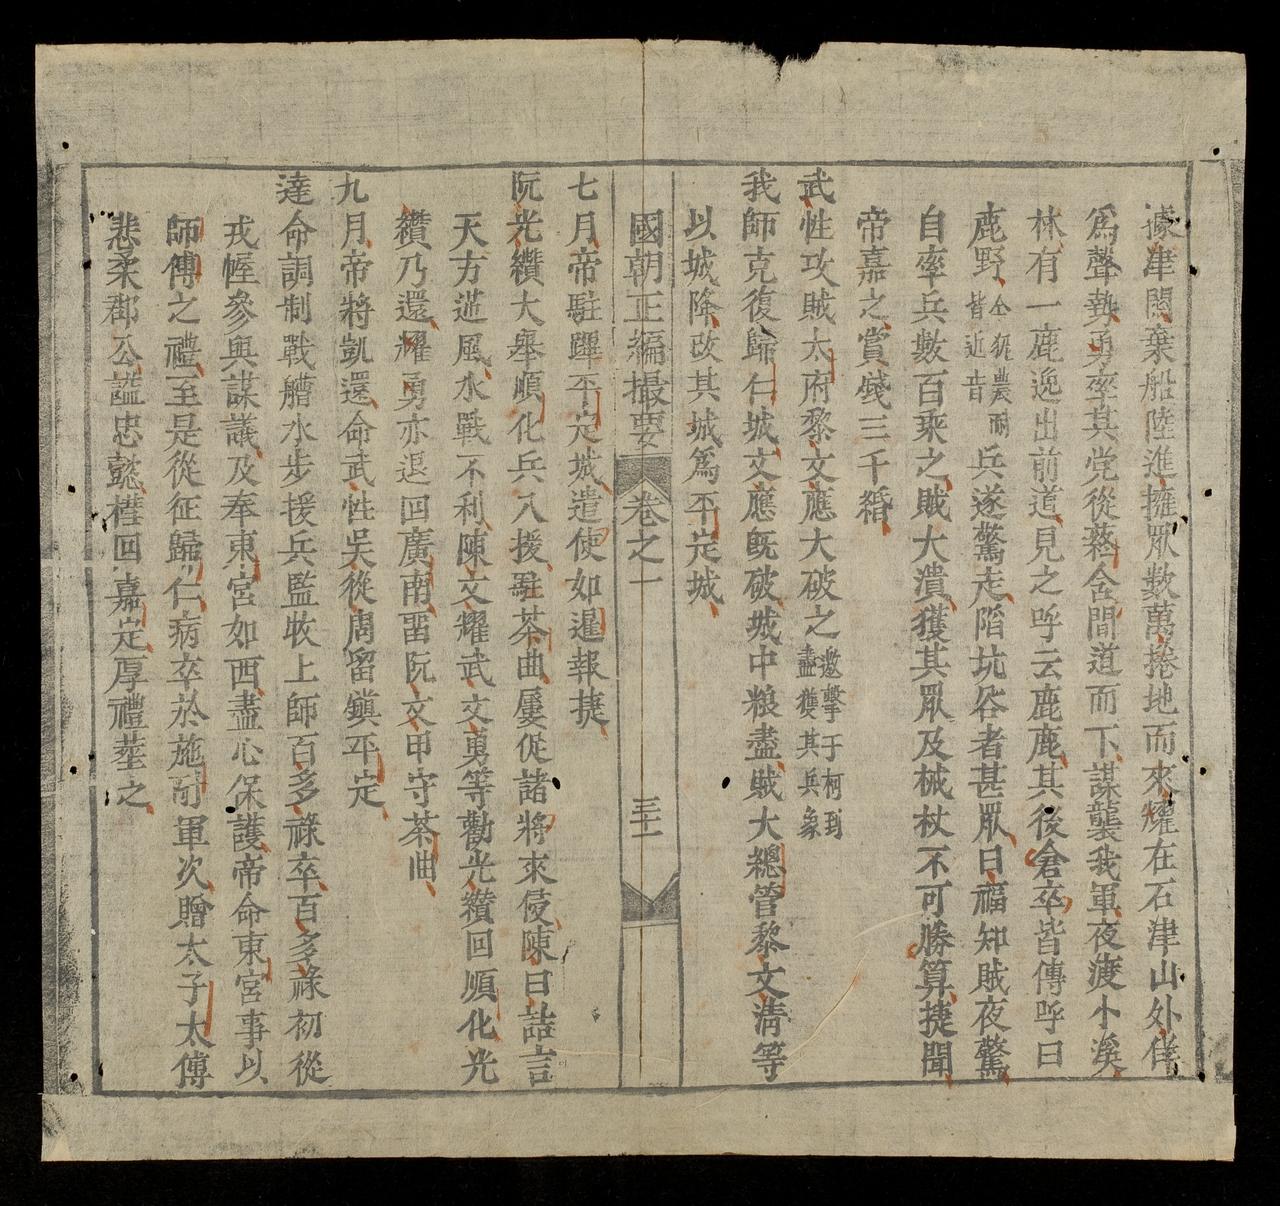 據津關棄船陸進擁眾数萬捲地而來耀在石津山外佯
爲聲勢勇率其党從蔡舍間道而下謀襲我軍夜渡小溪
林有一鹿逸出前道見之呼云鹿鹿其後倉卒皆傳呼曰
鹿野仝狔農耐皆近音兵遂驚走陷坑谷者甚眾曰福知賊夜驚
自率兵數百乘之賊大潰獲其眾及械杖不可勝算捷聞
帝嘉之賞錢三千緡
武性攻賊太府黎文應大破之邀擊于柯到盡獲其兵象
我師克復歸仁城文應既破城中粮盡賊大總管黎文清等
以城降改其城爲平定城
國朝正編撮要 卷之一 三十一
七月帝駐蹕平定城遣使如暹報捷
阮光纘大舉順化兵入援駐茶曲屢促諸將來侵陳曰詰言
天方逆風水戰不利陳文耀武文勇等勸光纘回順化光
纘乃還耀勇亦退回廣南畱阮文甲守茶曲
九月帝將凱還命武性吳從周留鎭平定
達命調制戰艚水步援兵監牧上師百多祿卒百多祿初從
戎幄參與謀議及奉東宮如西盡心保護帝命東宮事以
師傅之禮至是從征歸仁病卒於施耐軍次贈太子太傅
悲柔郡公謚忠懿櫬回嘉定厚禮塟之